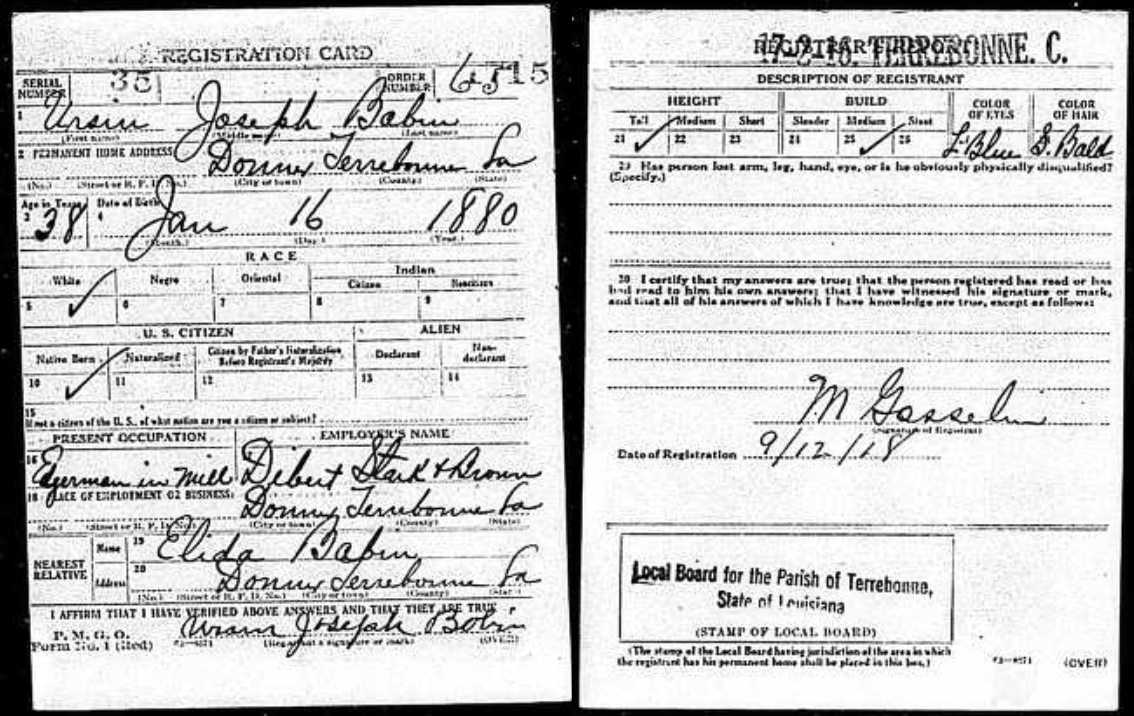 REGISTRATION CARD
SERIAL NUMBER 35 ORDER NUMBER 6515
1 Ursin Joseph Babin
(First name) (Middle name) (Last name)
2 PERMANENT HOME ADDRESS
Donner Terrebonne La
(No.) (Street or R. F. D. No.) (City or town) (County) (State)
Age in Years Date of Birth
3 38 4 Jan 16 1880
(Month.) (Day.) (Year.)
RACE
White Negro Oriental Indian
Citizen Noncitizen
5 ✓ 6 7 8 9
U. S. CITIZEN ALIEN
Native Born Naturalized Citizen by Father's Naturalization Before Registrant's Majority Declarant Non-declarant
10 ✓ 11 12 13 14
15
If not a citizen of the U. S., of what nation are you a citizen or subject?
PRESENT OCCUPATION EMPLOYER'S NAME
16 Edgerman in mill Dibert Stark & Brown
18 PLACE OF EMPLOYMENT OR BUSINESS:
Donner Terrebonne La
(No.) (Street or R. F. D. No.) (City or town) (County) (State)
NEAREST RELATIVE
Name 19 Elida Babin
Address 20 Donner Terrebonne La
(No.) (Street or R. F. D. No.) (City or town) (County) (State)
I AFFIRM THAT I HAVE VERIFIED ABOVE ANSWERS AND THAT THEY ARE TRUE
P. M. G. O.
Form No. 1 (Red) Ursin Joseph Babin
(Registrant's signature or mark) (OVER)
REGISTRAR'S REPORT
17-2-16. TERREBONNE. C.
DESCRIPTION OF REGISTRANT
HEIGHT BUILD COLOR OF EYES COLOR OF HAIR
Tall Medium Short Slender Medium Stout
21 ✓ 22 23 24 25 ✓ 26 L. Blue Bald
29 Has person lost arm, leg, hand, eye, or is he obviously physically disqualified?
(Specify.)
30 I certify that my answers are true; that the person registered has read or has
had read to him his own answers; that I have witnessed his signature or mark,
and that all of his answers of which I have knowledge are true, except as follows:
M Gosselin
(Signature of Registrar)
Date of Registration 9/12/18
Local Board for the Parish of Terrebonne,
State of Louisiana
(STAMP OF LOCAL BOARD)
(The stamp of the Local Board having jurisdiction of the area in which
the registrant has his permanent home shall be placed in this box.)
(OVER)